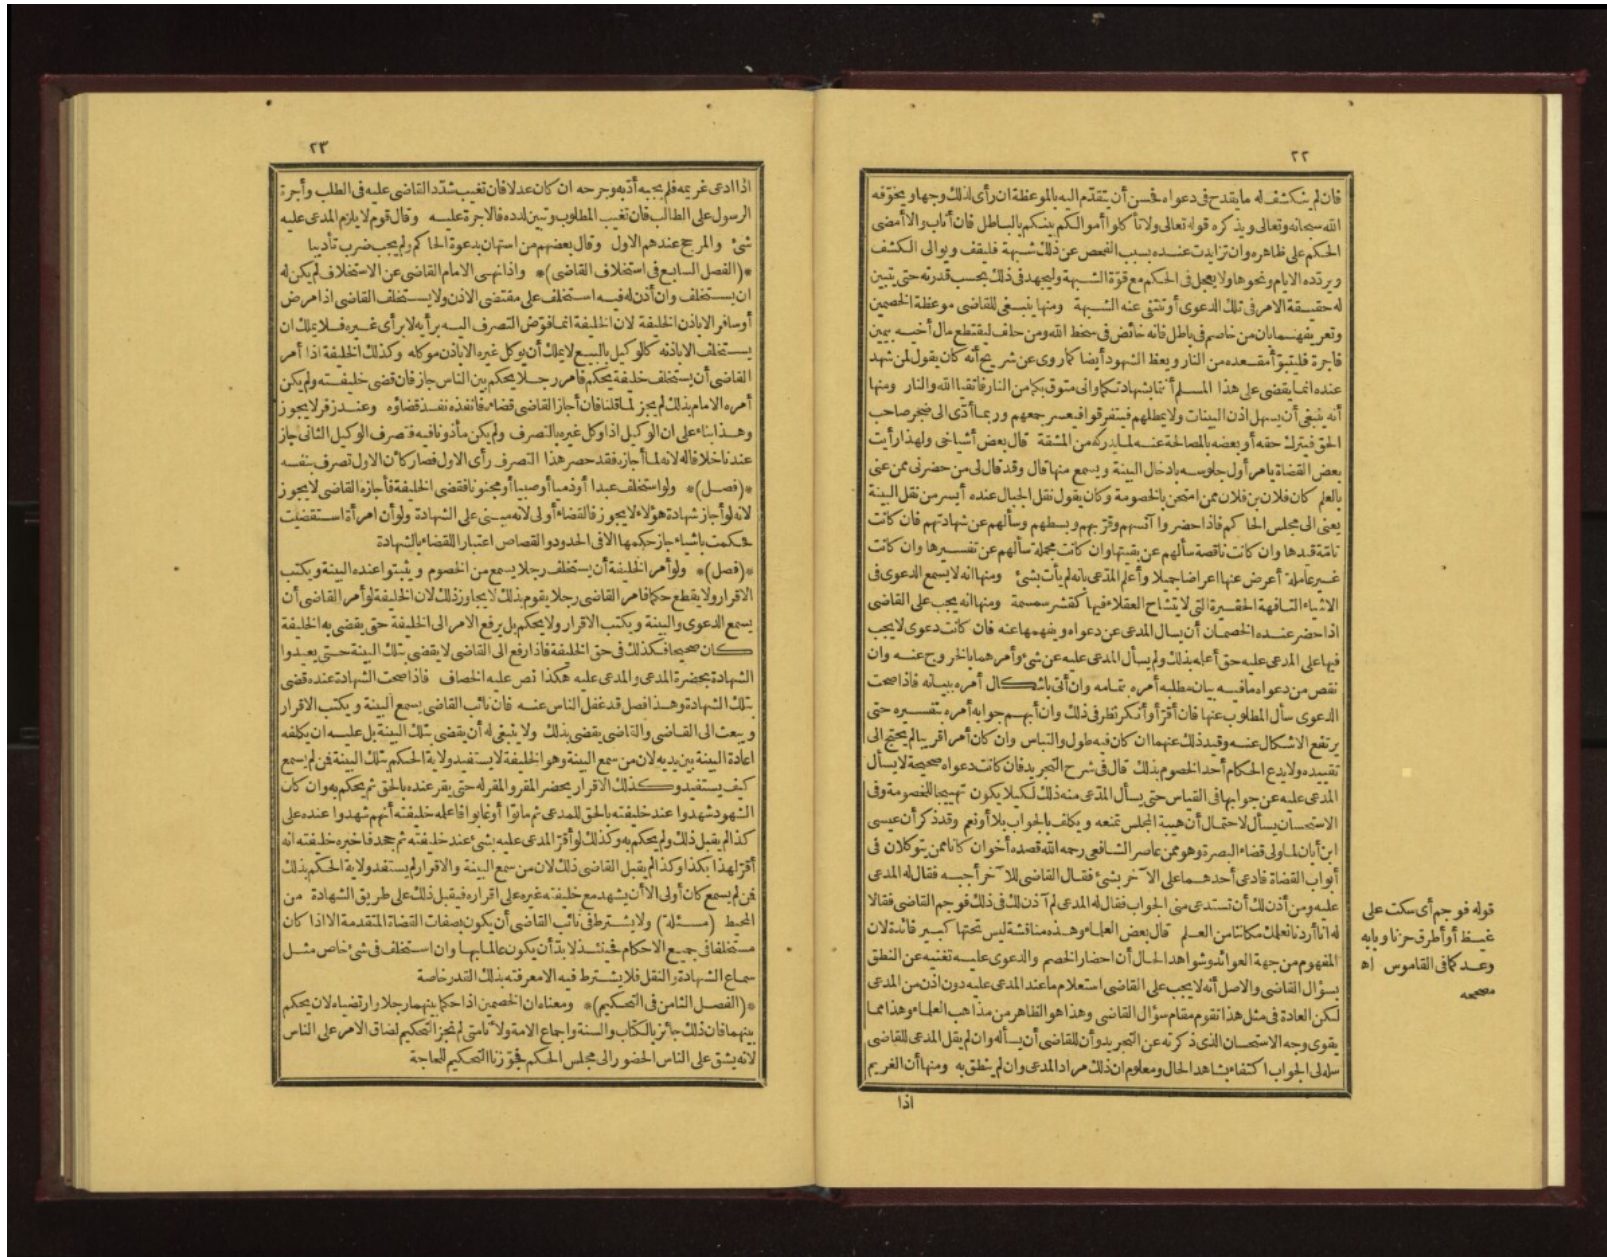 ٢٢
فان لم ينكشف له ما يقدح فى دعواه فحسن أن يتقدّم اليه بالموعظة ان رأى لذلك وجها ويخوّفه
الله سبحانه وتعالى ويذكره قوله تعالى ولا تأكلوا أموالكم بينكم بالباطل فان أناب والا أمضى
الحكم على ظاهره وان تزايدت عنده بسبب الفحص عن ذلك شبهة فليقف ويوالى الكشف
ويردّده الايام ونحوها ولا يعجل فى الحكم مع قوّة الشبهة وليجهد فى ذلك بحسب قدرته حتى يتبين
له حقيقة الامر فى تلك الدعوى أو تنتفى عنه الشبهة ومنها ينبغى للقاضى موعظة الخصمين
وتعريفهما بان من خاصم فى باطل فانه خائض فى سخط الله ومن حلف ليقتطع مال أخيه بيمين
فاجرة فليتبوّأ مقعده من النار ويعظ الشهود أيضا كما روى عن شريح أنه كان يقول لمن شهد
عنده انما يقضى على هذا المسلم أنتما بشهادتكما وانى متوق بكما من النار فاتقيا الله والنار ومنها
أنه ينبغى أن يسهل اذن البينات ولا يمطلهم فيتفرقوا فيعسر جمعهم وربما أدّى الى ضجر صاحب
الحق فيترك حقه أو بعضه بالمصالحة عنه لما يدركه من المشقة قال بعض أشياخى ولهذا رأيت
بعض القضاة يامر أول جلوسه بادخال البينة ويسمع منها قال وقد قال لى من حضرنى ممن عنى
بالعلم كان فلان بن فلان ممن امتحن بالخصومة وكان يقول نقل الجبال عنده أيسر من نقل البينة
يعنى الى مجلس الحاكم فاذا حضروا آنسهم وقرّبهم وبسطهم وسألهم عن شهادتهم فان كانت
تامّة قيدها وان كانت ناقصة سألهم عن بقيتها وان كانت مجملة سألهم عن تفسيرها وان كانت
غير عاملة أعرض عنها اعراضا جميلا وأعلم المدّعى بانه لم يأت بشئ ومنها انه لا يسمع الدعوى فى
الاشياء التافهة الحقيرة التى لا يتشاح العقلاء فيها كقشر سمسمة ومنها انه يجب على القاضى
اذا حضر عنده الخصمان أن يسال المدعى عن دعواه ويفهمها عنه فان كانت دعوى لا يجب
فيها على المدعى عليه حق أعلمه بذلك ولم يسأل المدعى عليه عن شئ وأمرهما بالخروج عنه وان
نقص من دعواه ما فيه بيان مطلبه أمره بتمامه وان أتى باشكال أمره ببيانه فاذا صحت
الدعوى سأل المطلوب عنها فان أقرّ أو أنكر نظر فى ذلك وان أبهم جوابه أمره بتفسيره حتى
يرتفع الاشكال عنه وقيد ذلك عنهما ان كان فيه طول والتباس وان كان أمرا قريبا لم يحتج الى
تقييده ولا يدع الحكام أحد الخصوم بذلك قال فى شرح التجريد فان كانت دعواه صحيحة لا يسأل
المدعى عليه عن جوابها فى القياس حتى يسأل المدّعى منه ذلك لكيلا يكون تهييجا للخصومة وفى
الاستحسان يسأل لاحتمال أن هيبة المجلس تمنعه ويكلف بالجواب بلا أو نعم وقد ذكر أن عيسى
ابن أبان لما ولى قضاء البصرة وهو ممن عاصر الشافعى رحمه الله قصده أخوان كانا ممن يتوكلان فى
أبواب القضاة فادعى أحدهما على الآخر بشئ فقال القاضى للآخر أجبه فقال له المدعى
عليه ومن أذن لك أن تستدعى منى الجواب فقال له المدعى لم آذن لك فى ذلك فوجم القاضى فقالا
له انا أردنا نعلمك مكاننا من العلم قال بعض العلماء وهذه مناقشة ليس تحتها كبير فائدة لان
المفهوم من جهة العوائد وشواهد الحال أن احضار الخصم والدعوى عليه تغنيه عن النطق
بسؤال القاضى والاصل أنه لا يجب على القاضى استعلام ما عند المدعى عليه دون اذن من المدعى
لكن العادة فى مثل هذا تقوم مقام سؤال القاضى وهذا هو الظاهر من مذاهب العلماء وهذا مما
يقوى وجه الاستحسان الذى ذكرته عن التجريد وأن للقاضى أن يسأله وان لم يقل المدعى للقاضى
سله لى الجواب اكتفاء بشاهد الحال ومعلوم ان ذلك مراد المدعى وان لم ينطق به ومنها أن الغريم
اذا
قوله فوجم أى سكت على
غيظ أو أطرق حزنا وبابه
وعد كما فى القاموس اه
مصححه
٢٣
اذا ادعى غريمه فلم يجبه أدّبه وجرحه ان كان عدلا فان تغيب شدّد القاضى عليه فى الطلب وأجرة
الرسول على الطالب فان تغيب المطلوب وتبين لدده فالاجرة عليه وقال قوم لا يلزم المدعى عليه
شئ والمرجح عندهم الاول وقال بعضهم من استهان بدعوة الحاكم ولم يجب ضرب تأديبا
*(الفصل السابع فى استخلاف القاضى)* واذا نهى الامام القاضى عن الاستخلاف لم يكن له
ان يستخلف وان أذن له فيه استخلف على مقتضى الاذن ولا يستخلف القاضى اذا مرض
أو سافر الا باذن الخليفة لان الخليفة انما فوّض التصرف اليه برأيه لا برأى غيره فلا يملك ان
يستخلف الا باذنه كالوكيل بالبيع لا يملك أن يوكل غيره الا باذن موكله وكذلك الخليفة اذا أمر
القاضى أن يستخلف خليفة يحكم فامر رجلا يحكم بين الناس جاز فان قضى خليفته ولم يكن
أمره الامام بذلك لم يجز لما قلنا فان أجاز القاضى قضاءه فانفذه نفذ قضاؤه وعند زفر لا يجوز
وهذا بناء على ان الوكيل اذا وكل غيره بالتصرف ولم يكن مأذونا فيه فتصرف الوكيل الثانى جاز
عندنا خلافا له لانه لما أجازه فقد حصر هذا التصرف رأى الاول فصار كأن الاول تصرف بنفسه
*(فصل)* ولو استخلف عبدا أو ذميا أو صبيا أو مجنونا فقضى الخليفة فأجازه القاضى لا يجوز
لانه لو أجاز شهادة هؤلاء لا يجوز فالقضاء أولى لانه مبنى على الشهادة ولو أن امرأة استقضيت
فحكمت باشياء جاز حكمها الا فى الحدود والقصاص اعتبارا للقضاء بالشهادة
*(فصل)* ولو أمر الخليفة أن يستخلف رجلا يسمع من الخصوم ويثبتوا عنده البينة ويكتب
الاقرار ولا يقطع حكما فامر القاضى رجلا يقوم بذلك لا يجاوز ذلك لان الخليفة لو أمر القاضى أن
يسمع الدعوى والبينة ويكتب الاقرار ولا يحكم بل يرفع الامر الى الخليفة حتى يقضى به الخليفة
كان صحيحا فكذلك فى حق الخليفة فاذا رفع الى القاضى لا يقضى بتلك البينة حتى يعيدوا
الشهادة بحضرة المدعى والمدعى عليه هكذا نص عليه الخصاف فاذا صحت الشهادة عنده قضى
بتلك الشهادة وهذا فصل قد غفل الناس عنه فان نائب القاضى يسمع البينة ويكتب الاقرار
ويبعث الى القاضى والقاضى يقضى بذلك ولا ينبغى له أن يقضى بتلك البينة بل عليه ان يكلفه
اعادة البينة بين يديه لان من سمع البينة وهو الخليفة لا يستفيد ولاية الحكم بتلك البينة فمن لم يسمع
كيف يستفيد وكذلك الاقرار يحضر المقر والمقر له حتى يقر عنده بالحق ثم يحكم به وان كان
الشهود شهدوا عند خليفته بالحق للمدعى ثم ماتوا أو غابوا فاعلمه خليفته أنهم شهدوا عنده على
كذا لم يقبل ذلك ولم يحكم به وكذلك لو أقرّ المدعى عليه بشئ عند خليفته ثم جحد فاخبره خليفته انه
أقرّ لهذا بكذا وكذا لم يقبل القاضى ذلك لان من سمع البينة والاقرار لم يستفد ولاية الحكم بذلك
فمن لم يسمع كان أولى الا أن يشهد مع خليفته غيره على اقراره فيقبل ذلك على طريق الشهادة من
المحيط (مسئلة) ولا يشترط فى نائب القاضى أن يكون بصفات القضاة المتقدمة الا اذا كان
مستخلفا فى جميع الاحكام فحينئذ لا بدّ أن يكون عالما بها وان استخلف فى شئ خاص مثل
سماع الشهادة والنقل فلا يشترط فيه الا معرفته بذلك القدر خاصة
*(الفصل الثامن فى التحكيم)* ومعناه ان الخصمين اذا حكما بينهما رجلا وارتضياه لان يحكم
بينهما فان ذلك جائز بالكتاب والسنة واجماع الامة ولانا متى لم نجز التحكيم لضاق الامر على الناس
لانه يشق على الناس الحضور الى مجلس الحكم فجوّزنا التحكيم للحاجة